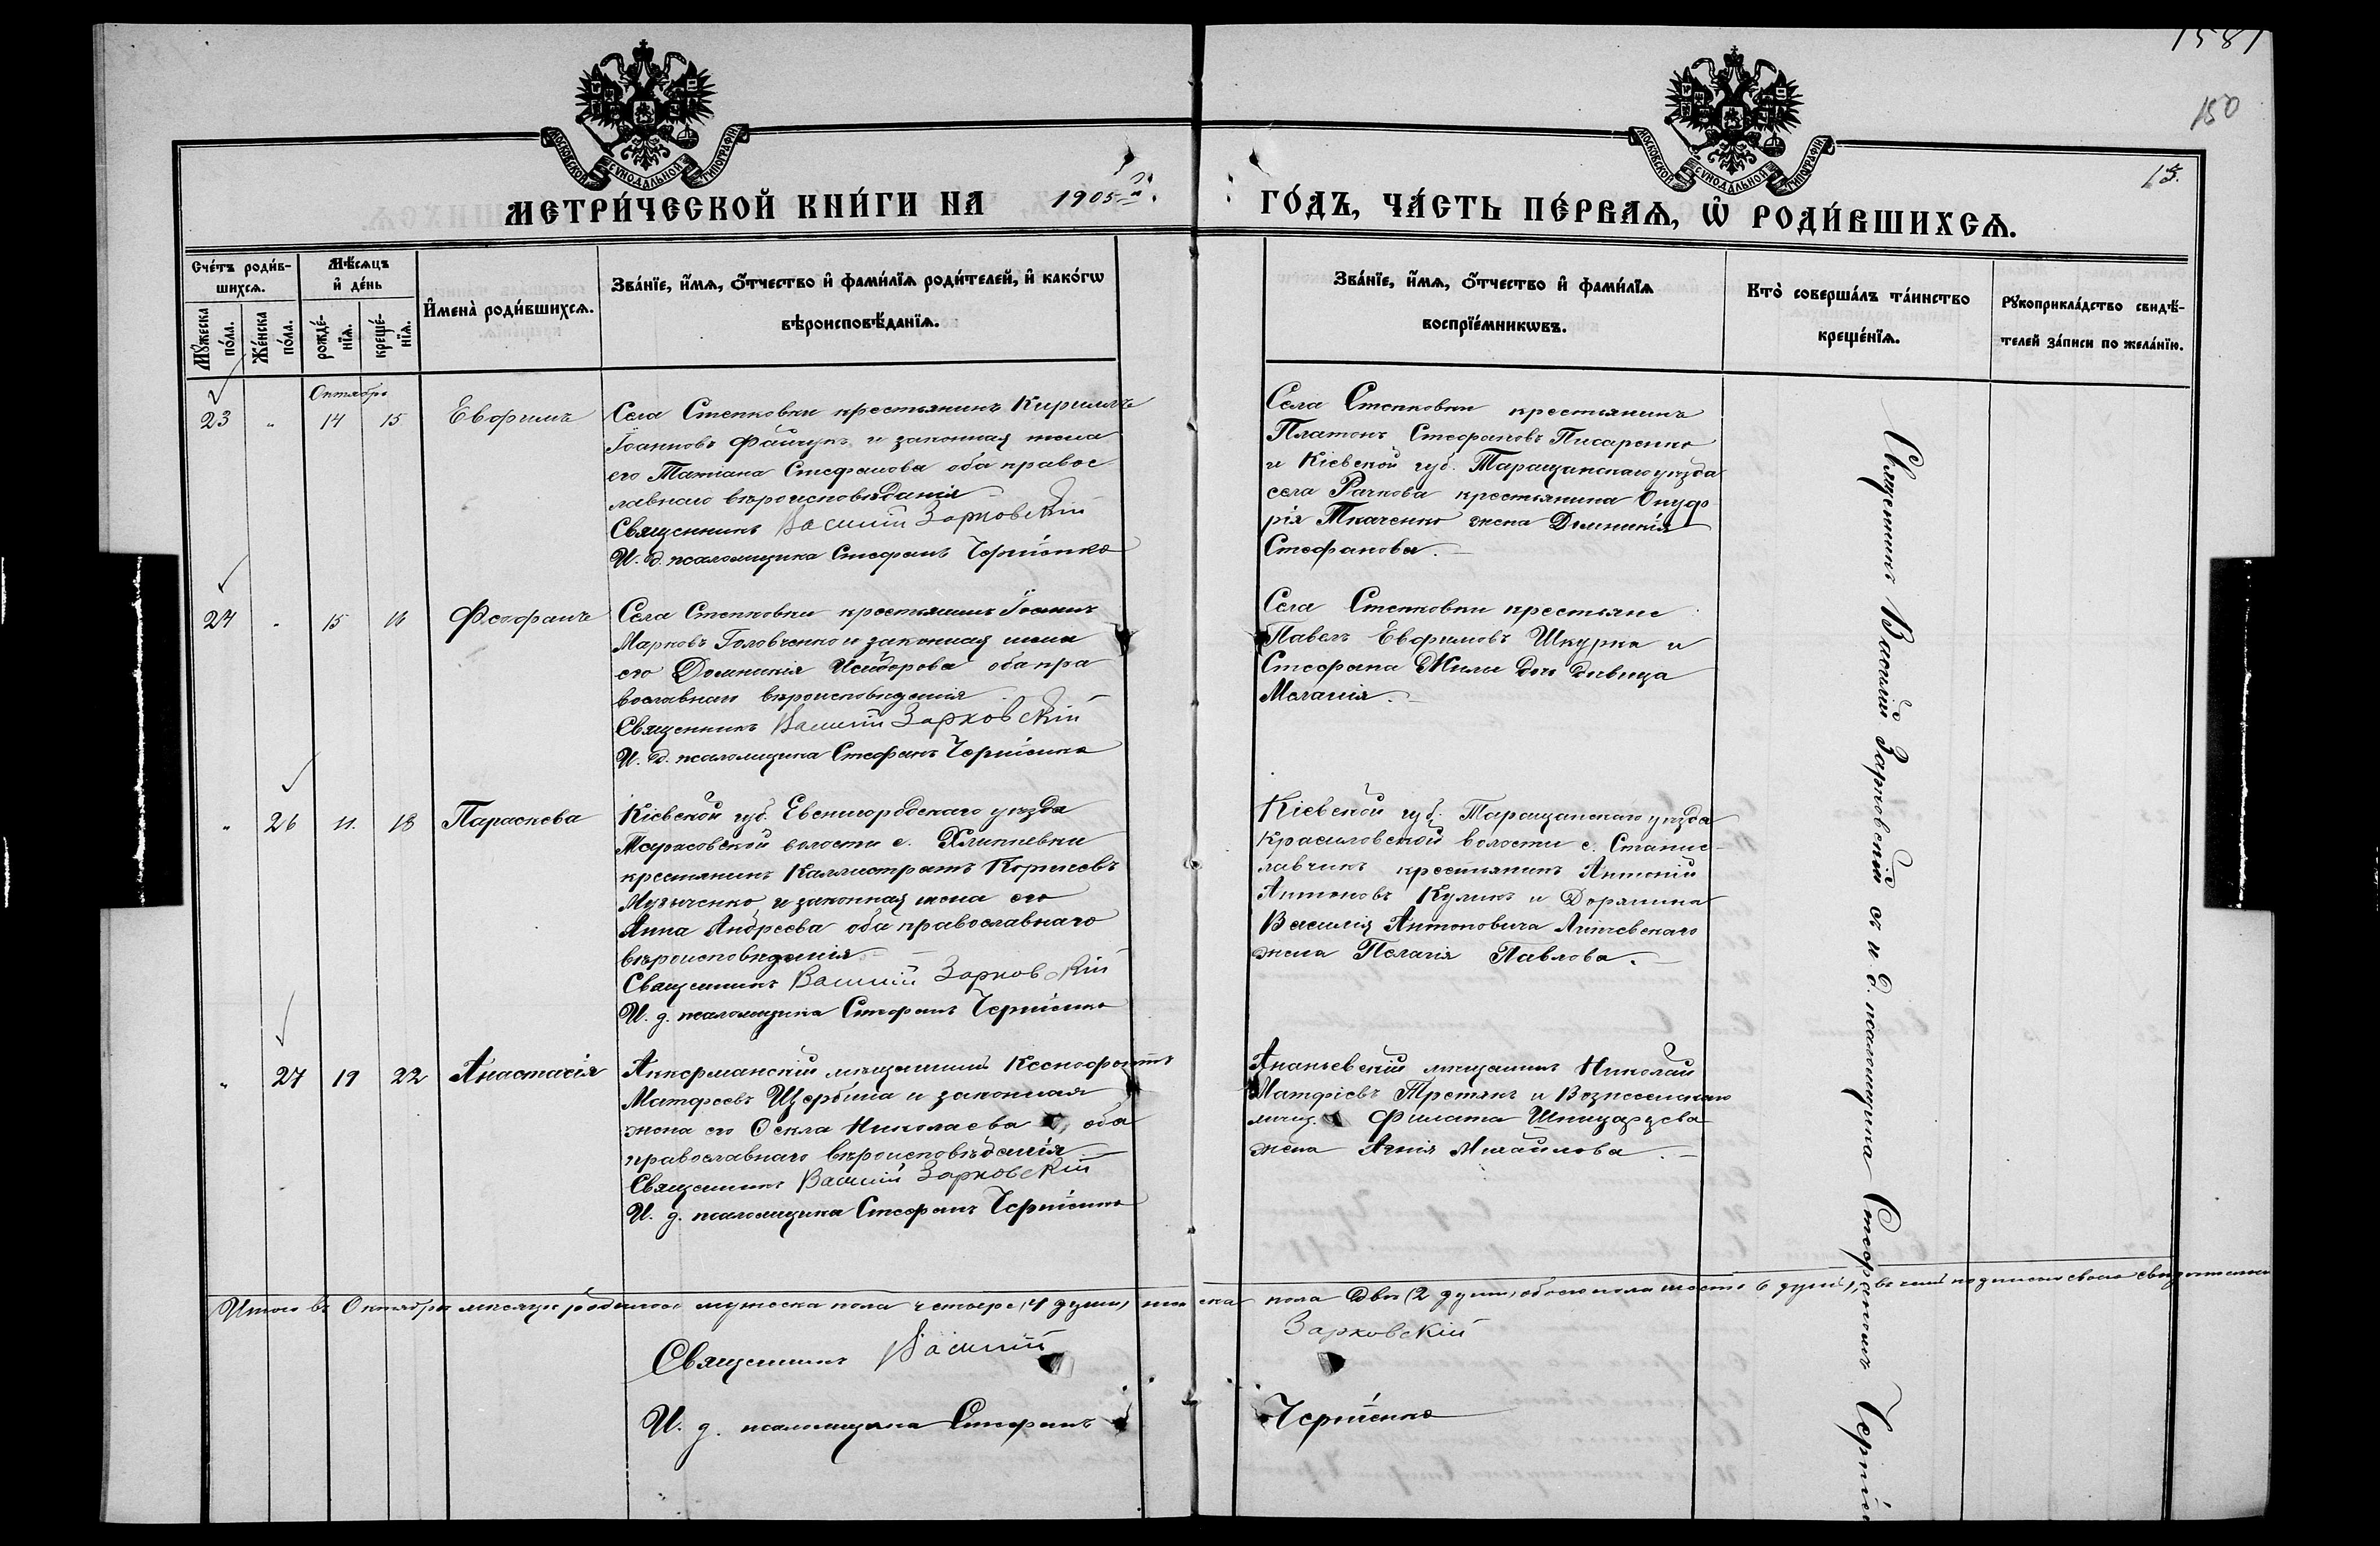 1581
150
15.
МОСКОВСКОЙ СѴНОДАЛЬНОЙ ТИПОГРАФІИ
МОСКОВСКОЙ СѴНОДАЛЬНОЙ ТИПОГРАФІИ
МЕТРИ́ЧЕСКОЙ КНИ́ГИ НА 1905 ГО́ДЪ, ЧА́СТЬ ПЕ́РВАѦ, Ѡ҆ РОДИ́ВШИХСѦ.
Сче́тъ роди́в-
шихсѧ.
Мꙋ́жеска
по́ла.
Же́нска
по́ла.
Мѣ́сѧцъ
и҆ де́нь
рожде́-
нїѧ.
креще́-
нїѧ.
И҆мена̀ роди́вшихсѧ.
Зва́нїе, и҆́мѧ, ѻ҆́тчество и҆ фами́лїѧ роди́телей, и҆ како́гѡ
вѣроисповѣ́данїѧ.
Зва́нїе, и҆́мѧ, ѻ҆́тчество и҆ фами́лїѧ
воспрїе́мникѡвъ.
Кто̀ соверша́лъ та́инство
креще́нїѧ.
Рꙋкоприкла́дство свидѣ́-
телей за́писи по жела́нїю.
Октябрь
23 " 14 15 Евфимъ
Села Степковки крестьянинъ Кириллъ
Іоанновъ Файчукъ и законная жена
его Татіана Стефанова оба правос
лавнаго вѣроисповѣданія
Священникъ Василій Зарковскій
И. д. псаломщика Стефанъ Черніенко
Села Степковки крестьянинъ
Платонъ Стефановъ Писаренко
и Кіевской губ. Таращанскаго уѣзда
села Рачкова крестьянина Онуф
рія Ткаченко жена Домникія
Стефанова.
24 " 15 16 Феофанъ
Села Степковки крестьянинъ Іоаннъ
Марковъ Головченко и законная жена
его Домникія Исидорова оба пра
вославнаго вѣроисповѣданія
Священникъ Василій Зарковскій
И. д. псаломщика Стефанъ Черніенко
Села Степковки крестьяне
Павелъ Евфимовъ Шкурка и
Стефана Жилы дочь дѣвица
Меланія.
" 26 11. 18 Параскева
Кіевской губ. Звенигородскаго уѣзда
Тарасовской волости с. Хлипневки
крестьянинъ Каллистратъ Корніевъ
и законная жена его
Анна Андреева оба православнаго
вѣроисповѣданія
Священникъ Василій Зарковскій
И. д. псаломщика Стефанъ Черніенко
Кіевской губ. Таращанскаго уѣзда
Красиловской волости с. Станис-
лавчикъ крестьянинъ Антоній
Антоновъ Куликъ и Дорянина
Василія Антоновича
жена Пелагія Павлова.
" 27 19 22 Анастасія
Аккерманскій мѣщанинъ Ксенофонтъ
Матфеевъ Щербина и законная
жена его Ѳекла Николаева оба
православнаго вѣроисповѣданія
Священникъ Василій Зарковскій
И. д. псаломщика Стефанъ Черніенко
Ананьевскій мѣщанинъ Николай
Матфіевъ Третякъ и Вознесенскаго
мѣщ. Филата
жена Агнія Михайлова.
Священникъ Василій Зарковскій съ и. д. псаломщика Стефаномъ Черніен
Итого въ Октябрѣ мѣсяцѣ родилось мужеска пола четыре (4 души) женска пола двѣ (2 души) обоего пола шесть 6 душъ),
Священникъ Василій Зарковскій
И. д. псаломщика Стефанъ Черніенко